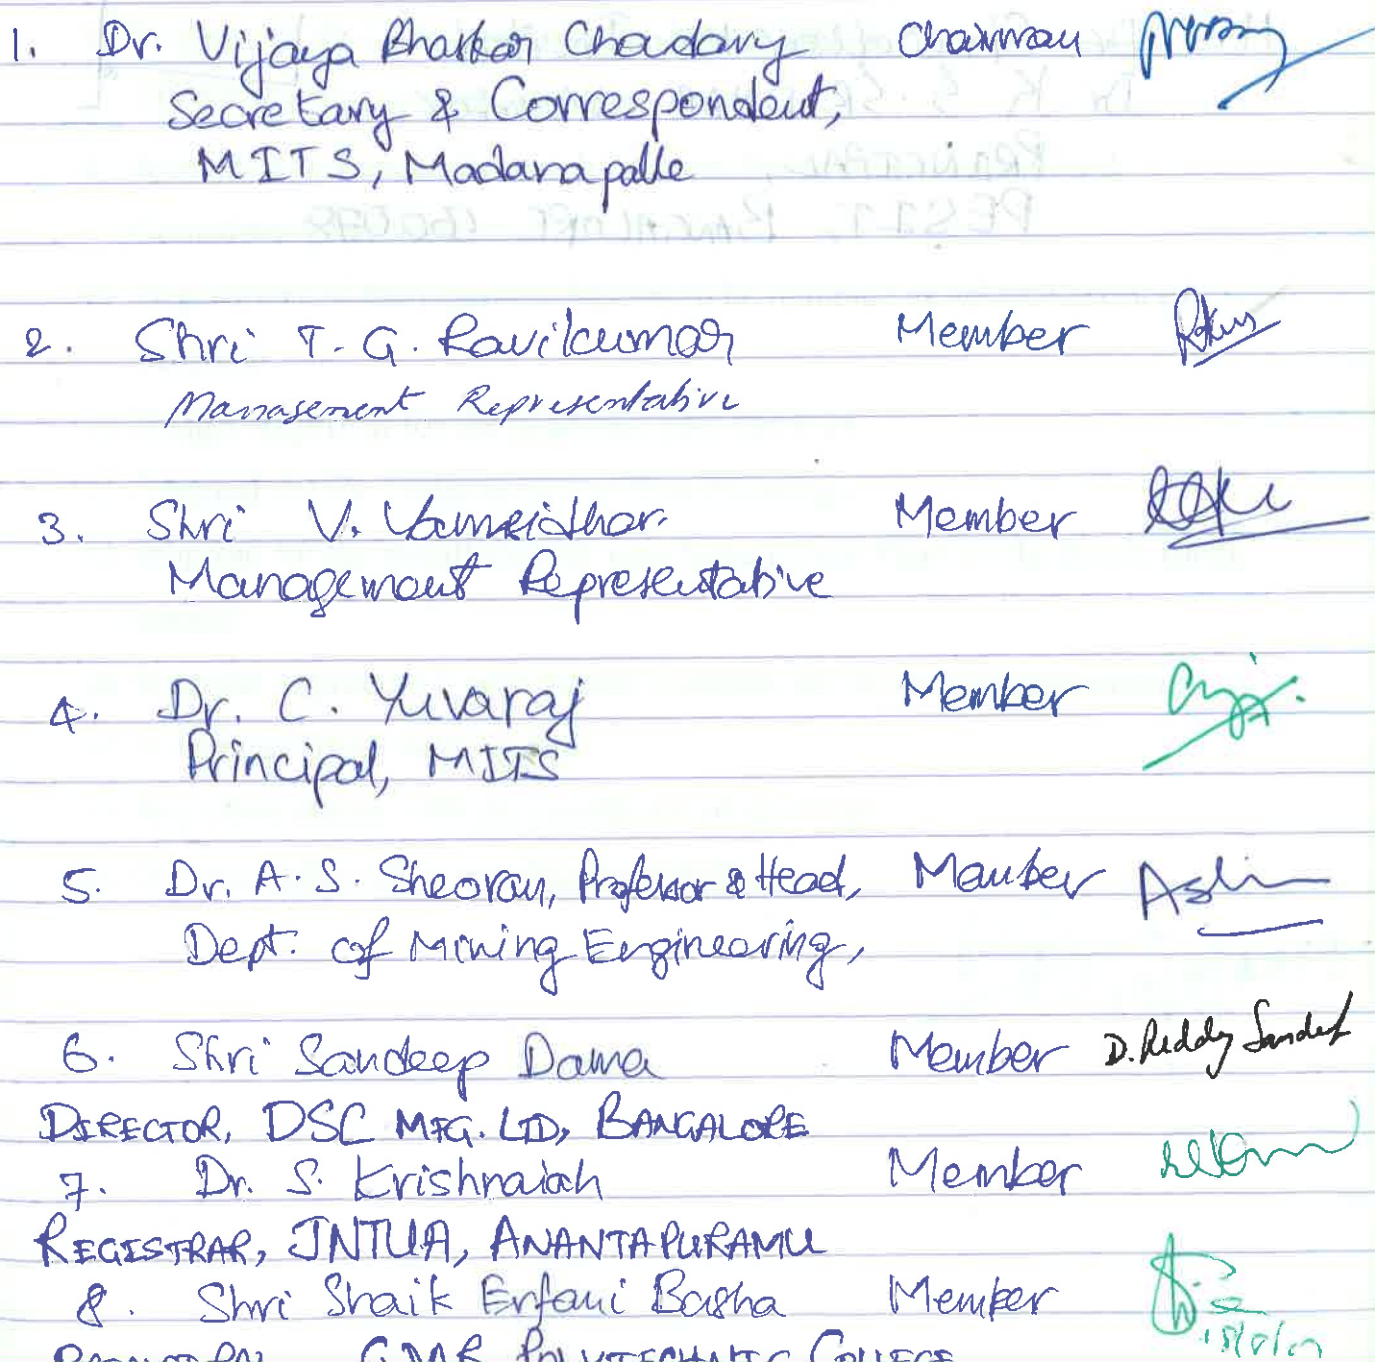 1. Dr. Vijaya Bhaskar Choudary Chairman
Secretary & Correspondent,
MITS, Madanapalle
2. Shri T. G. Ravikumar Member
Management Representative
3. Shri V. Vamsidhar. Member
Management Representative
4. Dr. C. Yuvaraj Member
Principal, MITS
5. Dr. A. S. Sheoran, Professor & Head, Member
Dept. of Mining Engineering,
6. Shri Sandeep Dama Member D. Reddy Sandeep
DIRECTOR, DSC MFG. LTD, BANGALORE
7. Dr. S. Krishnaiah Member
REGISTRAR, JNTUA, ANANTAPURAMU
8. Shri Shaik Erfani Basha Member
PRINCIPAL GMR POLYTECHNIC COLLEGE